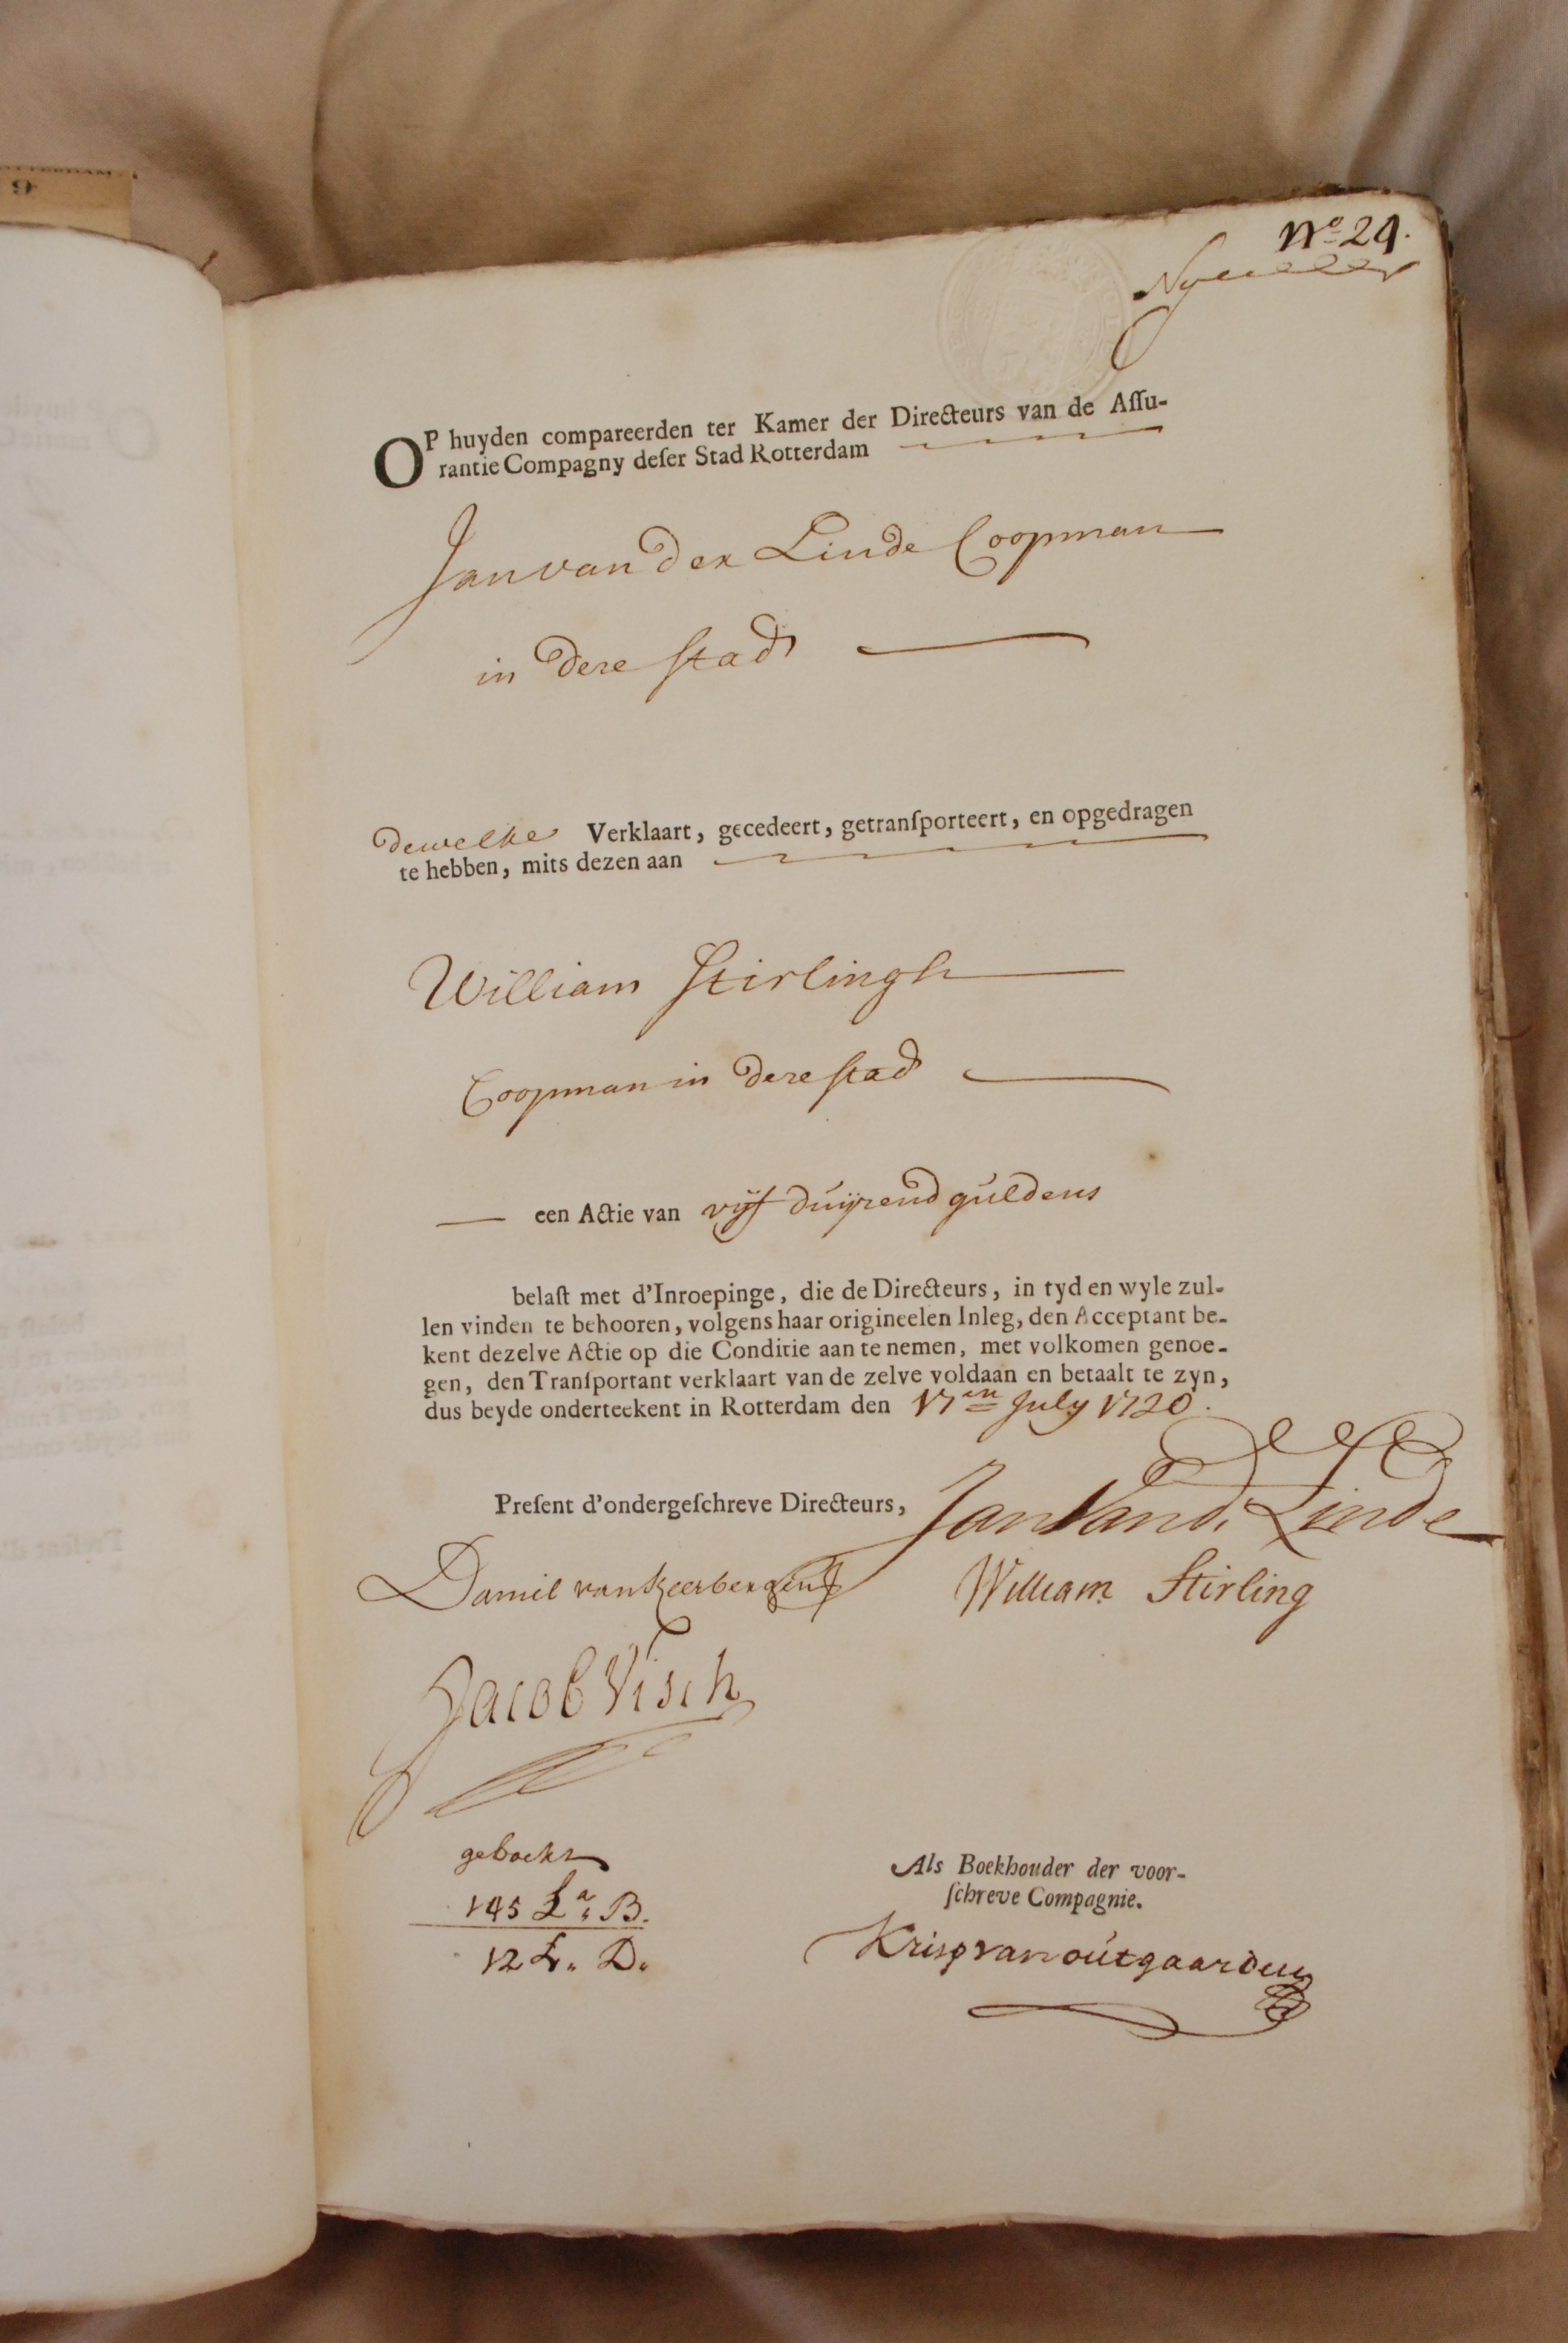 No 24.
OP huyden compareerden ter Kamer der Directeurs van de Aſſu-
rantie Compagny deſer Stad Rotterdam
Jan van der Linde Coopman
in deze stad
dewelke Verklaart, gecedeert, getranſporteert, en opgedragen
te hebben, mits dezen aan
William Stirlingh
Coopman in deze stad
een Actie van vijf duijzend guldens
belaſt met d'Inroepinge, die de Directeurs, in tyd en wyle zul-
len vinden te behooren, volgens haar origineelen Inleg, den Acceptant be-
kent dezelve Actie op die Conditie aan te nemen, met volkomen genoe-
gen, den Tranſportant verklaart van de zelve voldaan en betaalt te zyn,
dus beyde onderteekent in Rotterdam den 17en July 1720.
Preſent d'ondergeſchreve Directeurs,
Jan Vand. Linde
Daniel van Keerbergen
William Stirling
Jacob Visch
geboekt
145 La. B.
12 L. D.
Als Boekhouder der voor-
ſchreve Compagnie.
Krisp van outgaarden